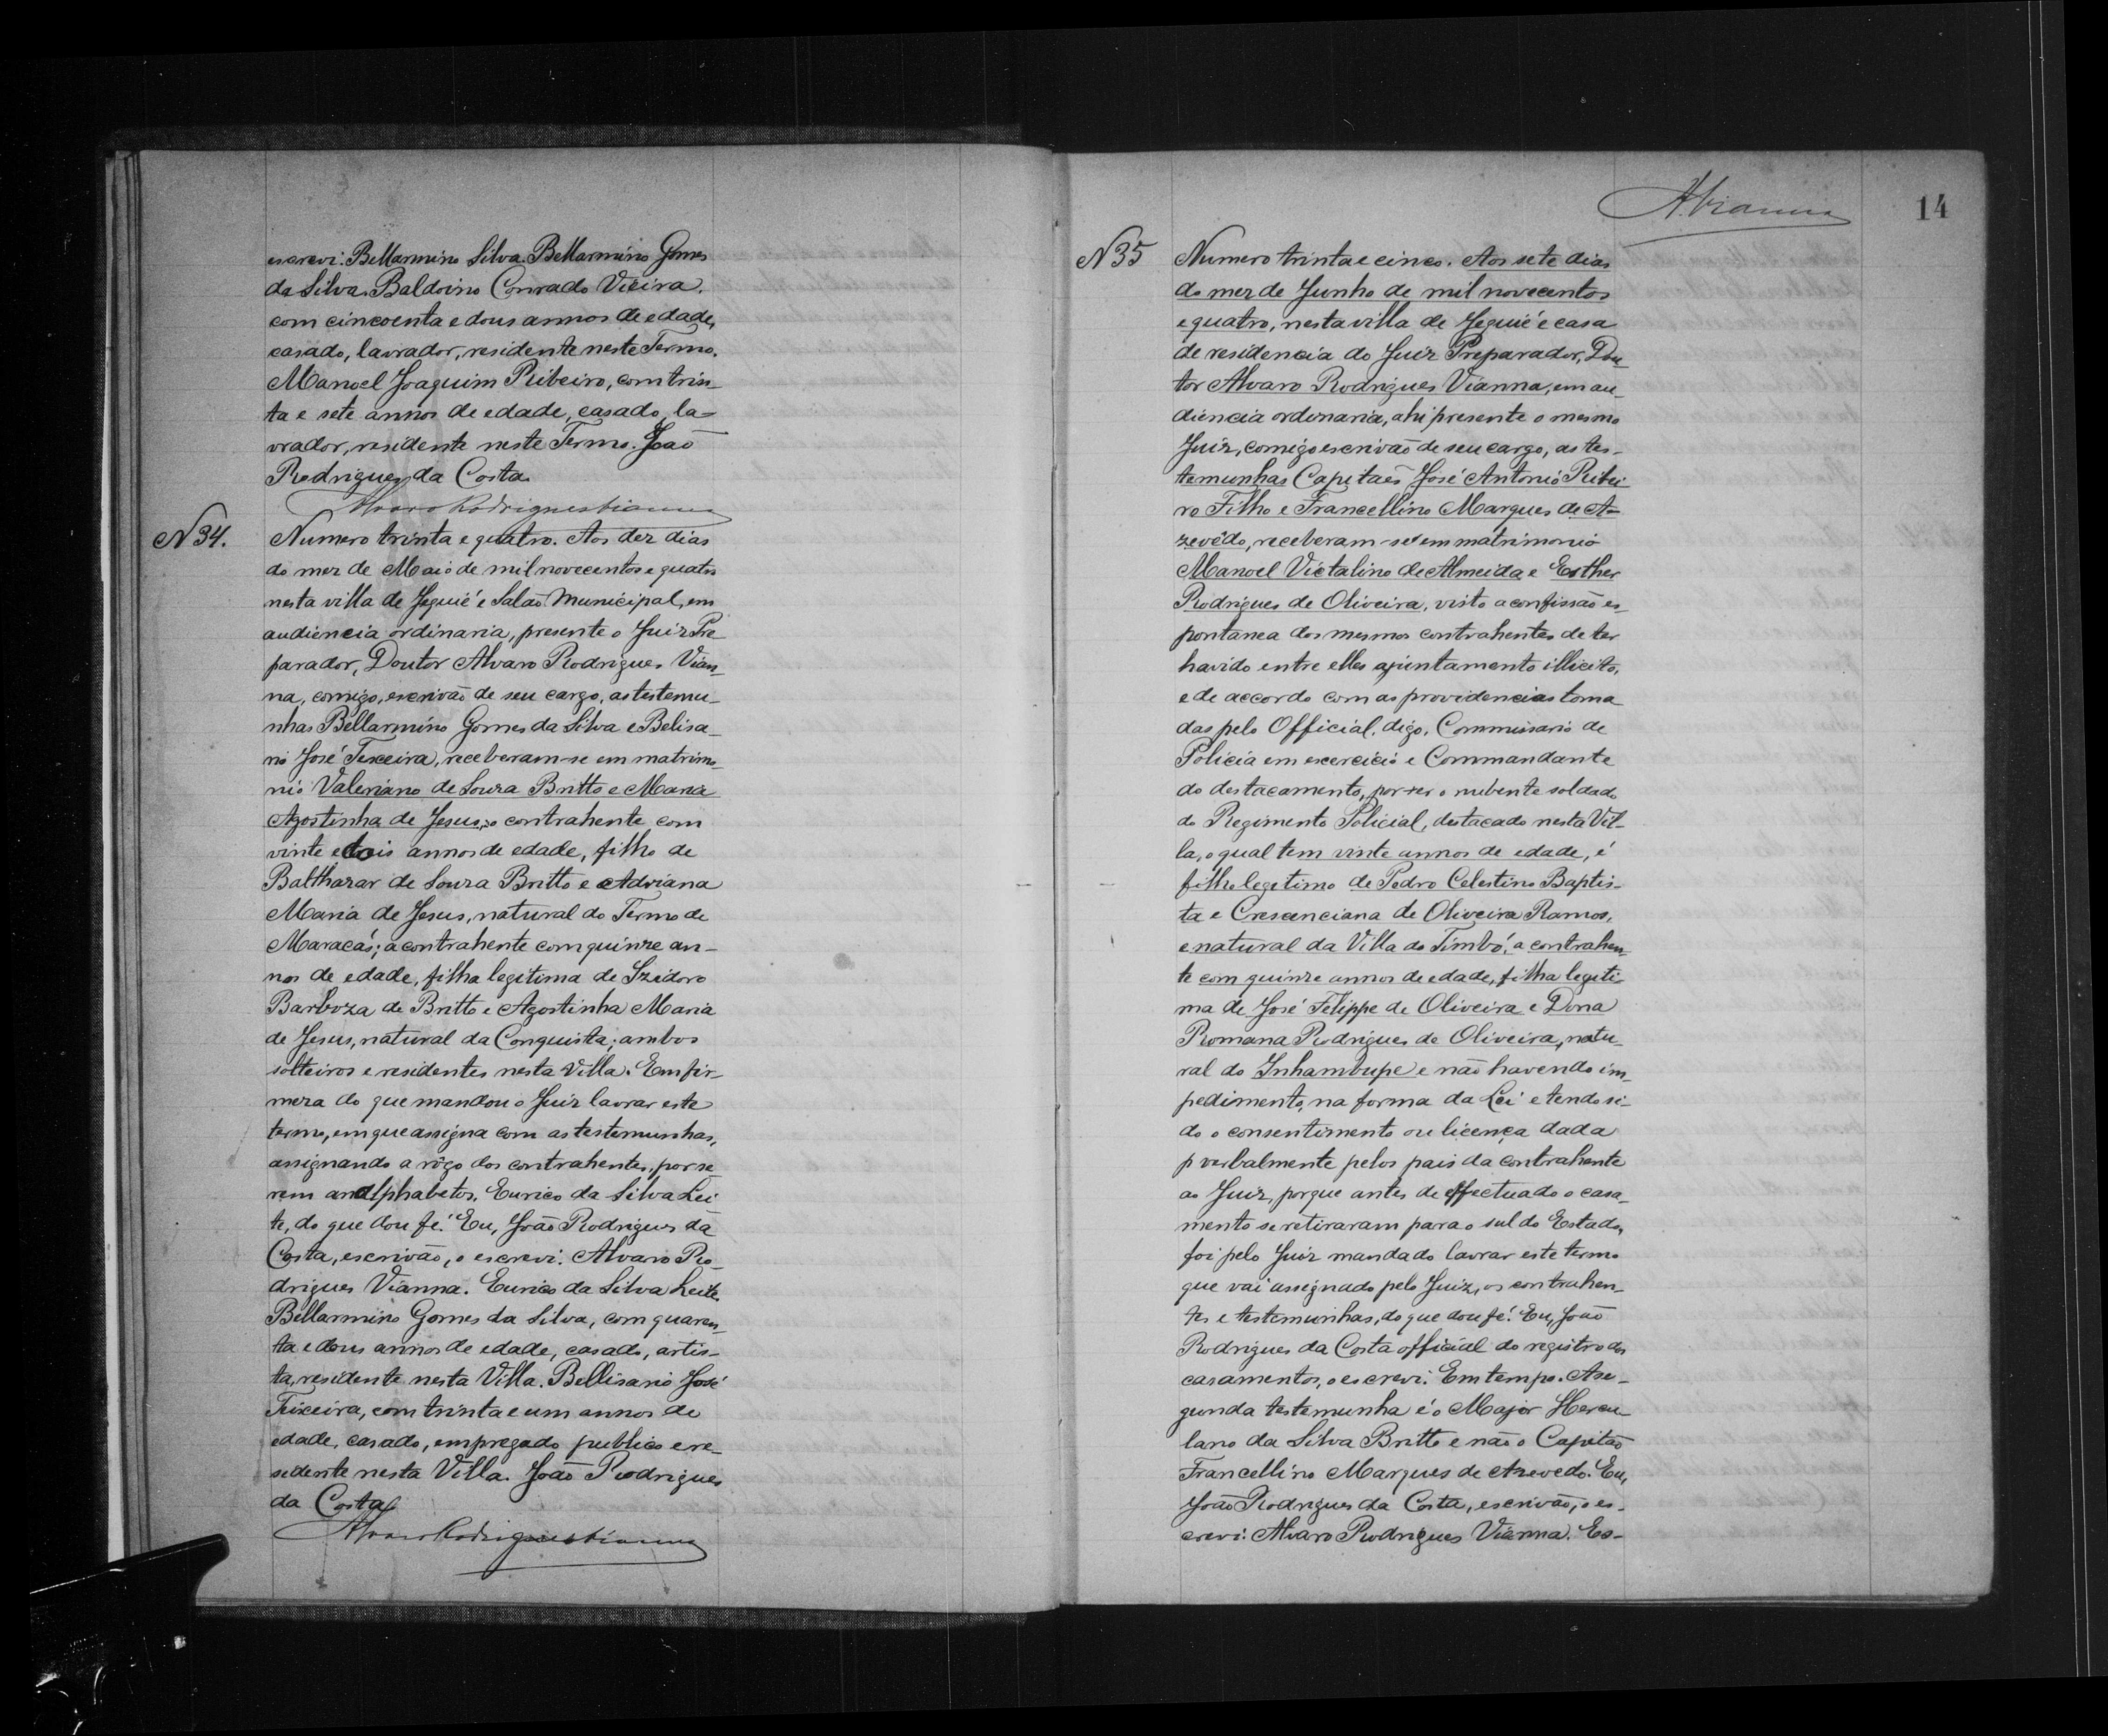 escrevi. Bellarmino Silva. Bellarmino Gomes
da Silva. Baldoino Conrado Vieira,
com cincoenta e dous annos de edade,
casado, lavrador, residente neste Termo.
Manoel Joaquim Ribeiro, com trin-
ta e sete annos de edade, casado, la-
vrador, residente neste Termo. João
Rodrigues da Costa.
Alvaro Rodrigues Vianna
N 34.
Numero trinta e quatro. Aos dez dias
do mez de Maio de mil novecentos e quatro
nesta villa de Jequié e Salão Municipal, em
audiencia ordinaria, presente o Juiz Pre-
parador, Doutor Alvaro Rodrigues Vian-
na, comigo, escrivão de seu cargo, as testemu-
nhas Bellarmino Gomes da Silva e Belisa-
rio José Texeira, receberam-se em matrimo-
nio Valeriano de Souza Britto e Maria
Agostinha de Jesus, o contrahente com
vinte e dois annos de edade, filho de
Balthazar de Souza Britto e Adriana
Maria de Jesus, natural do Termo de
Maracás; a contrahente com quinze an-
nos de edade, filha legitima de Izidoro
Barboza de Britto e Agostinha Maria
de Jesus, natural da Conquista; ambos
solteiros e residentes nesta Villa. Em fir-
meza do que mandou o Juiz lavrar este
termo, em que assigna com as testemunhas,
assignando a rôgo dos contrahentes, por se-
rem analphabetos, Eurico da Silva Lei-
te, do que dou fé. Eu, João Rodrigues da
Costa, escrivão, o escrevi. Alvaro Ro-
drigues Vianna. Eurico da Silva Leite.
Bellarmino Gomes da Silva, com quaren-
ta e dous annos de edade, casado, artis-
ta, residente nesta Villa. Bellisario José
Teixeira, com trinta e um annos de
edade, casado, empregado publico e re-
sidente nesta Villa. João Rodrigues
da Costa
Alvaro Rodrigues Vianna
AVianna
14
N 35
Numero trinta e cinco. Aos sete dias
do mez de Junho de mil novecentos
e quatro, nesta villa de Jequié e casa
de residencia do Juiz Preparador, Dou-
tor Alvaro Rodrigues Vianna, em au-
diencia ordinaria, ahi presente o mesmo
Juiz, comigo escrivão de seu cargo, as tes-
temunhas Capitães José Antonio Ribei-
ro Filho e Francellino Marques de A-
zevêdo, receberam-se em matrimonio
Manoel Victalino de Almeida e Esther
Rodrigues de Oliveira, visto a confissão es-
pontanea dos mesmos contrahentes de ter
havido entre elles ajuntamento illicito,
e de accordo com as providencias toma-
das pelo Official, digo, Commissario de
Policia em excercicio e Commandante
do destacamento, por ser o nubente soldado
do Regimento Policial, destacado nesta Vil-
la, o qual tem vinte annos de edade, é
filho legitimo de Pedro Celestino Baptis-
ta e Crescenciana de Oliveira Ramos,
e natural da Villa do Timbó; a contrahen-
te com quinze annos de edade, filha legiti-
ma de José Felippe de Oliveira e Dona
Romana Rodrigues de Oliveira, natu-
ral do Inhambupe e não havendo im-
pedimento, na forma da Lei e tendo si-
do o consentimento ou licença dada
p verbalmente pelos pais da contrahente
ao Juiz, porque antes de effectuado o casa-
mento se retiraram para o sul do Estado,
foi pelo Juiz mandado lavrar este termo
que vai assignado pelo Juiz, os contrahen-
tes e testemunhas, do que dou fé. Eu, João
Rodrigues da Costa official do registro dos
casamentos, o escrevi. Em tempo. A se-
gunda testemunha é o Major Hercu-
lano da Silva Britto e não o Capitão
Francellino Marques de Azevedo. Eu,
João Rodrigues da Costa, escrivão, o es-
crevi. Alvaro Rodrigues Vianna. Es-